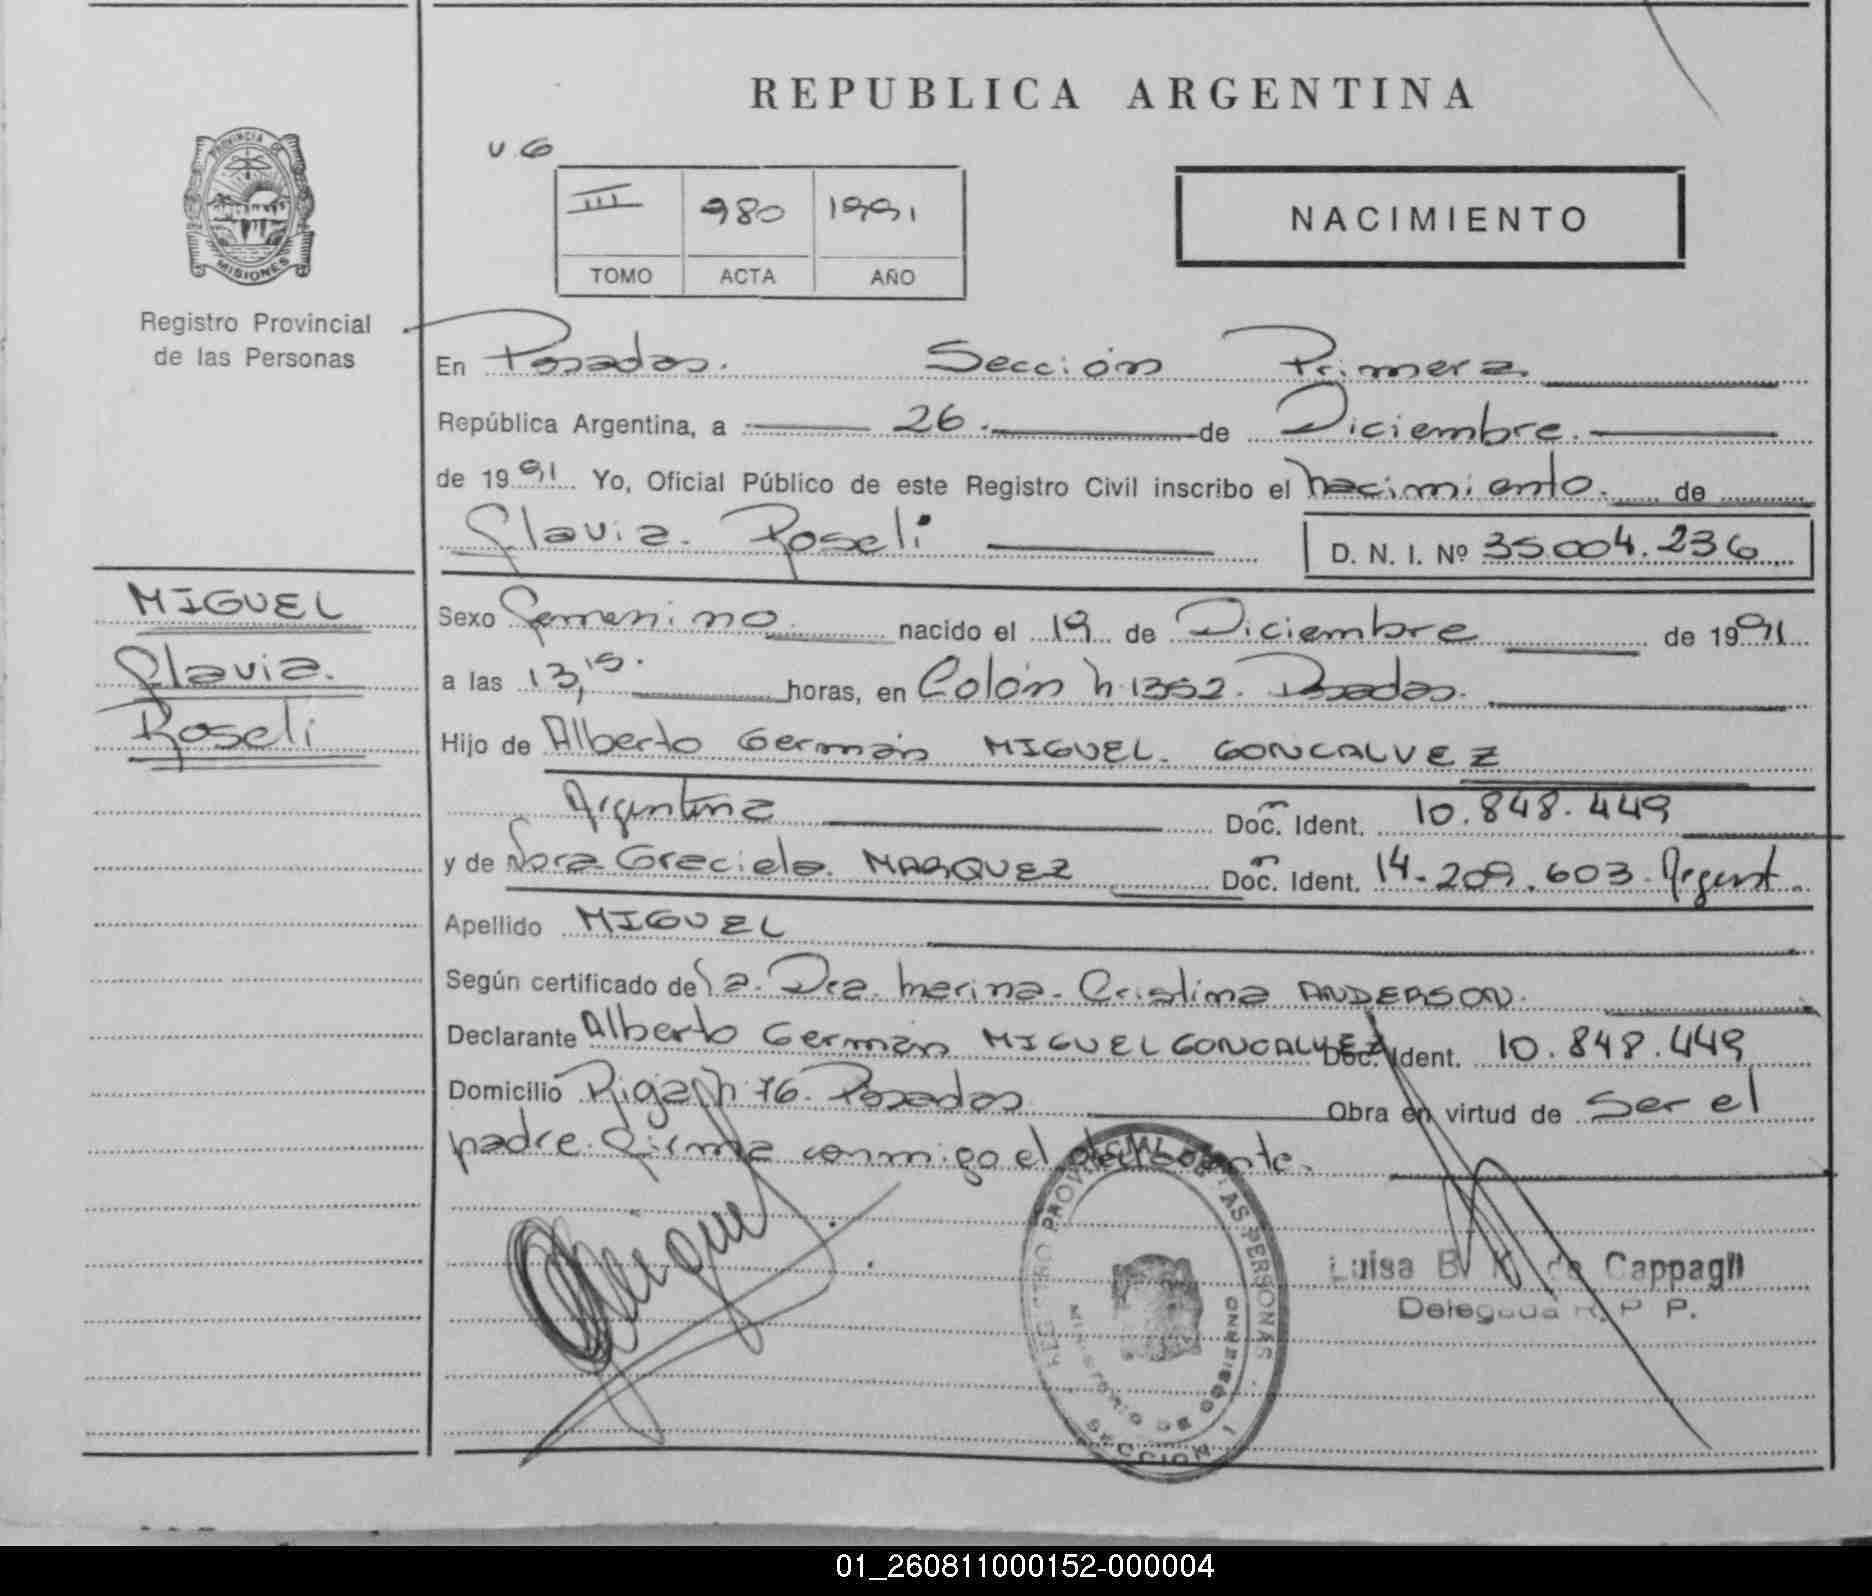 REPUBLICA ARGENTINA
PROVINCIA DE
MISIONES
Registro Provincial
de las Personas
U.G
III 980 1991
TOMO ACTA AÑO
NACIMIENTO
En Posadas. Sección Primera.
República Argentina, a 26. de Diciembre.
de 1991 Yo, Oficial Público de este Registro Civil inscribo el nacimiento. de
Flavia. Roseli
D. N. I. Nº 35.004.236
MIGUEL
Flavia.
Roseli
Sexo Femenino nacido el 19 de Diciembre de 1991
a las 13,15. horas, en Colón n. 1352. Posadas.
Hijo de Alberto Germán MIGUEL. GONCALVEZ
Argentina Doc. Ident. 10.848.449
y de Nora Graciela. MARQUEZ Doc. Ident. 14.209.603. Argent.
Apellido MIGUEL
Según certificado de la. Dra. Marina. Cristina ANDERSON.
Declarante Alberto Germán MIGUEL GONCALVEZ Doc. Ident. 10.848.449
Domicilio Riga n. 76. Posadas Obra en virtud de Ser el
padre. Firma conmigo el declarante.
Miguel
REGISTRO PROVINCIAL DE LAS PERSONAS
MINISTERIO DE GOBIERNO
SECCION 1
Luisa B. K. de Cappagli
Delegada R. P. P.
01_260811000152-000004